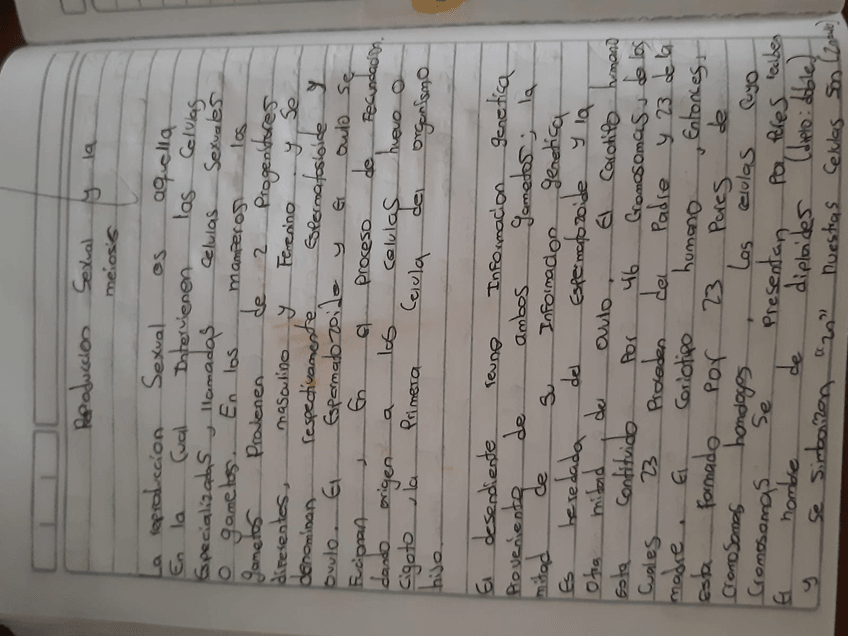 Reproduccion Sexual y la
meiosis
La reproduccion Sexual es aquella
En la Cual Intervienen las Celulas
Especializadas, llamadas Celulas Sexuales
O gametos. En los mamiferos los
gametos Provienen de 2 Progenitores
diferentes, masculino y Femenino y se
denominan respectivamente Espermatosoide y
Ovulo. El Espermatozoide y El ovulo se
Fucionan, En el proceso de Fecundacion.
dando origen a las Celulas huevo o
Cigoto, la Primera Celula del organismo
hijo.
El desendiente reune Informacion genetica
Proveniente de ambos gametos; la
mitad de Su Informacion genetica
Es heredada del Espermatozoide y la
Otra mitad, del ovulo. El Cariotipo humano
Esta Contituido Por 46 Cromosomas, de los
Cuales 23 Proceden del Padre y 23 de la
madre. El Cariotipo humano, Entonces,
Esta Formado POr 23 Pares de
Cromosomas homologos, Las Celulas Cuyo
Cromosomas Se Presentan Por Pares reciben
El nombre de diploides (diplo: doble)
y Se Simbolizan "2n" Nuestras Celulas Son